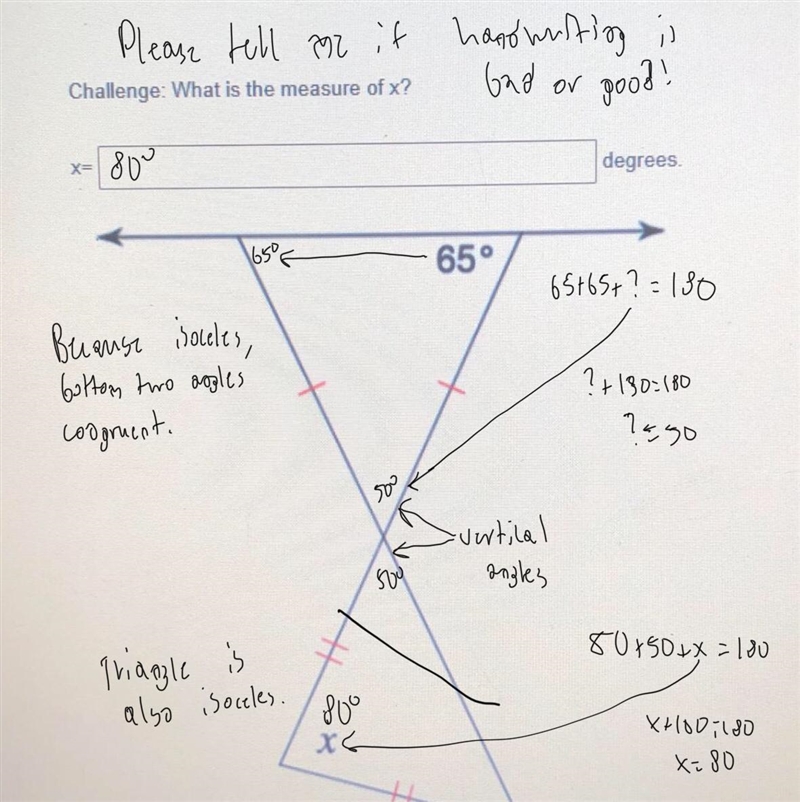 Please tell me if handwriting is
bad or good!
Challenge: What is the measure of x?
x= 80° degrees.
65° 65°
65+65+? = 180
Because isoceles,
bottom two angles
congruent.
?+130=180
?=50
50°
vertical
angles
50°
80+50+x=180
Triangle is
also isoceles.
80°
x
x+100=180
x=80